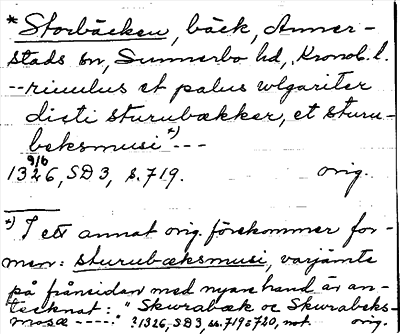 * Storbäcken, bäck, Anner-
stads sn, Sunnerbo hd, Kronob. l.
--riuulus et palus wlgariter
dicti sturubækker, et sturu-
beksmusi*)---
9/6
1326, SD 3, s. 719. orig.
*) I ett annat orig. förekommer for-
men: sturubæksmusi, varjämte
på frånsidan med nyare hand är an-
tecknat: "Skurabæk oc Skurabeks-
mosæ ----:" ?1326, SD 3, ss. 719 o 720, not. orig.